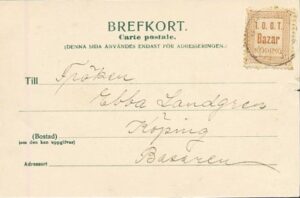 BREFKORT.
Carte postale.
(DENNA SIDA ANVÄNDES ENDAST FÖR ADRESSERINGEN.)
I. O. G. T.
Bazar
KÖPING
Till Fröken
Ebba Landgren
Köping
(Bostad)
(om den kan uppgifvas)
Basaren
Adressort